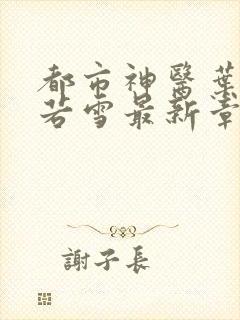 都市神醫葉
若雪最新章
謝子長